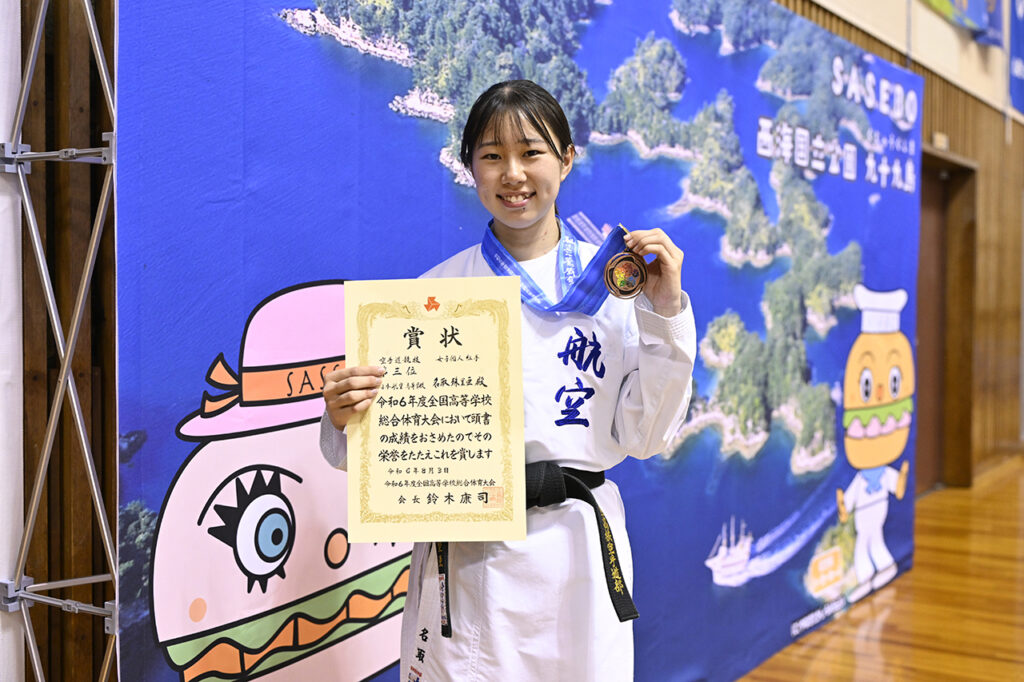 S・A・S・E・B・O
西海国立公園 九十九島
SASE
賞状
空手道競技 女子個人組手
第三位
名取
殿
令和6年度全国高等学校
総合体育大会において頭書
の成績をおさめたのでその
栄誉をたたえこれを賞します
令和6年8月3日
令和6年度全国高等学校総合体育大会
会長 鈴木康司
航空
空手道部
名取